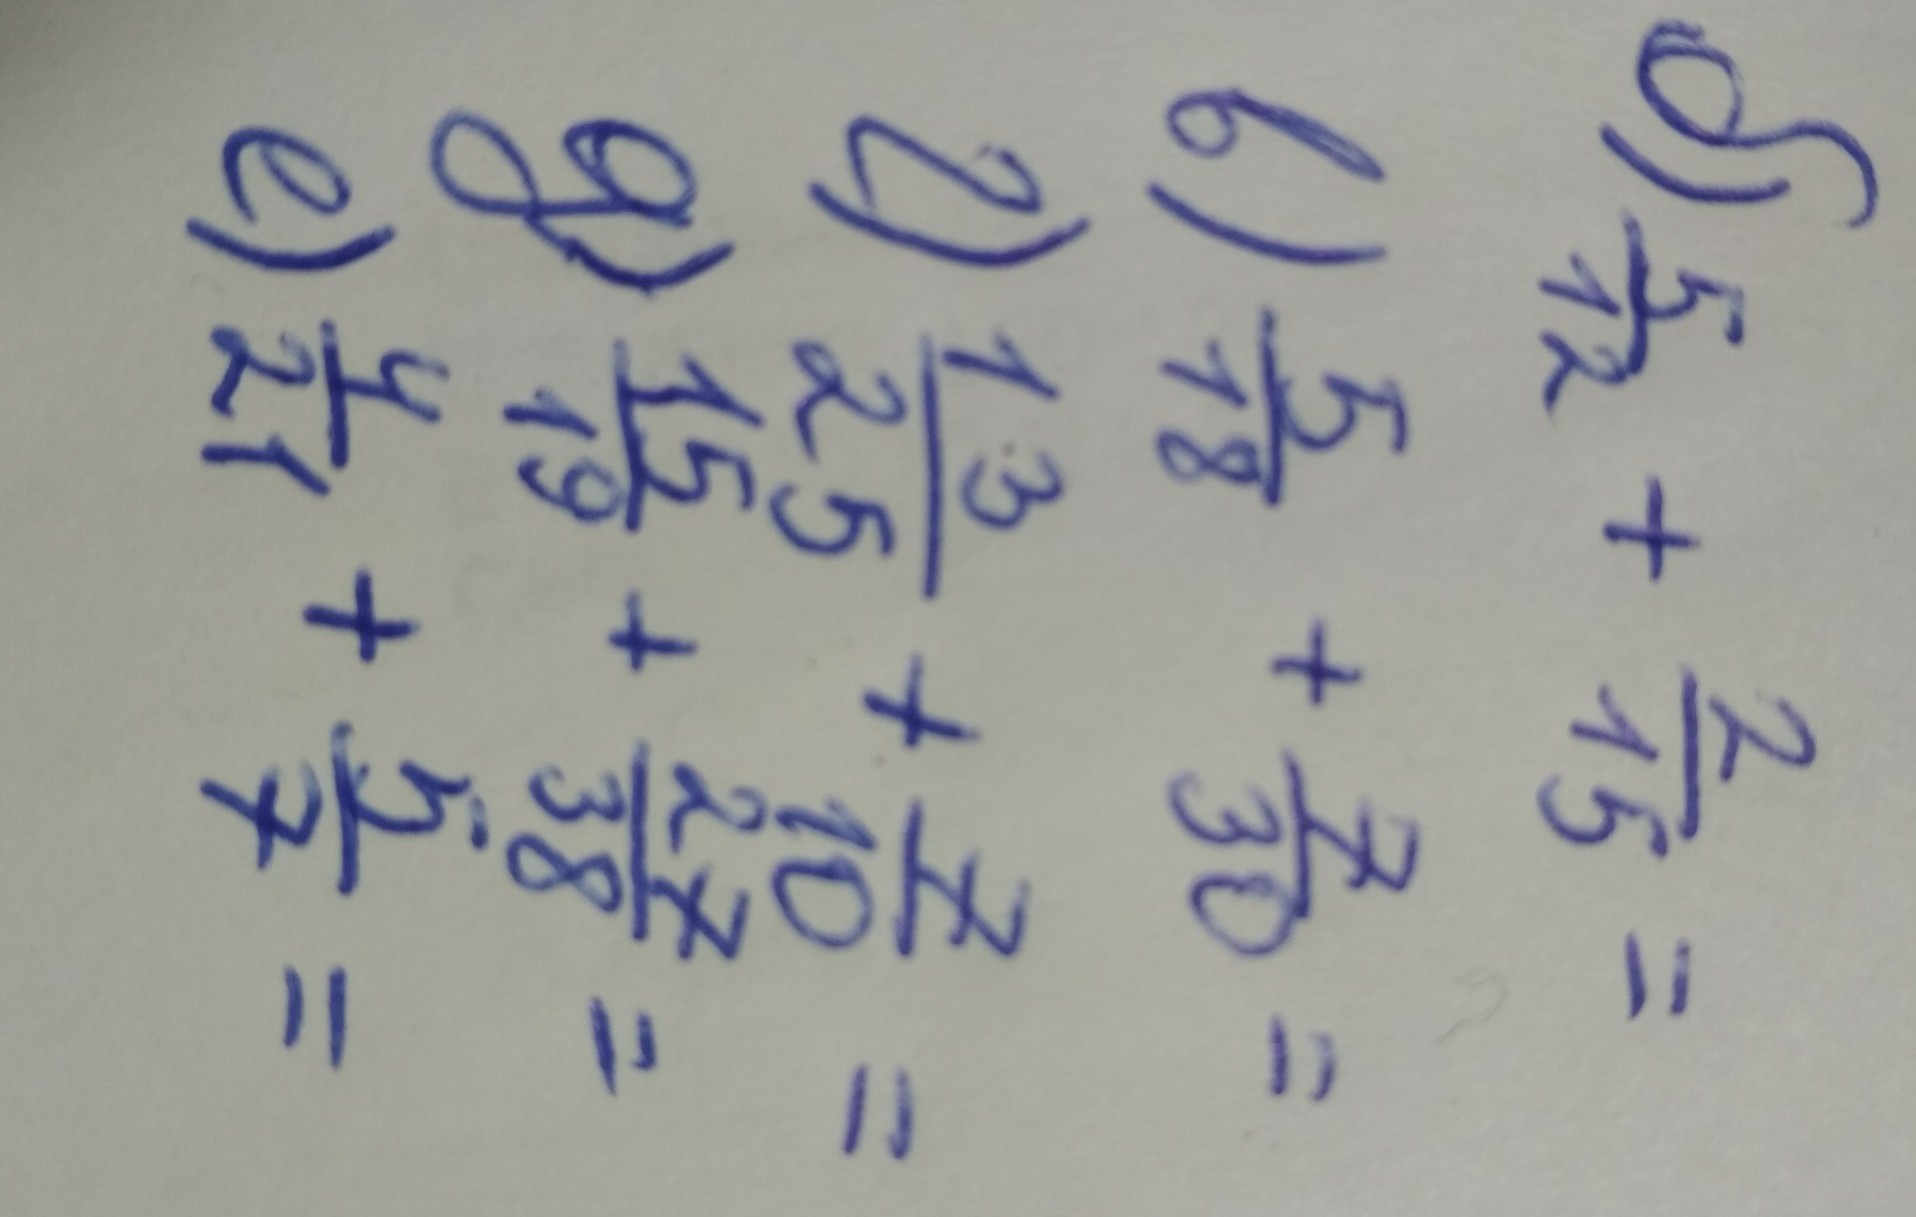 б) 5/12 + 2/15 =
в) 5/18 + 7/30 =
г) 13/25 + 7/10 =
д) 15/19 + 27/38 =
е) 4/21 + 5/7 =